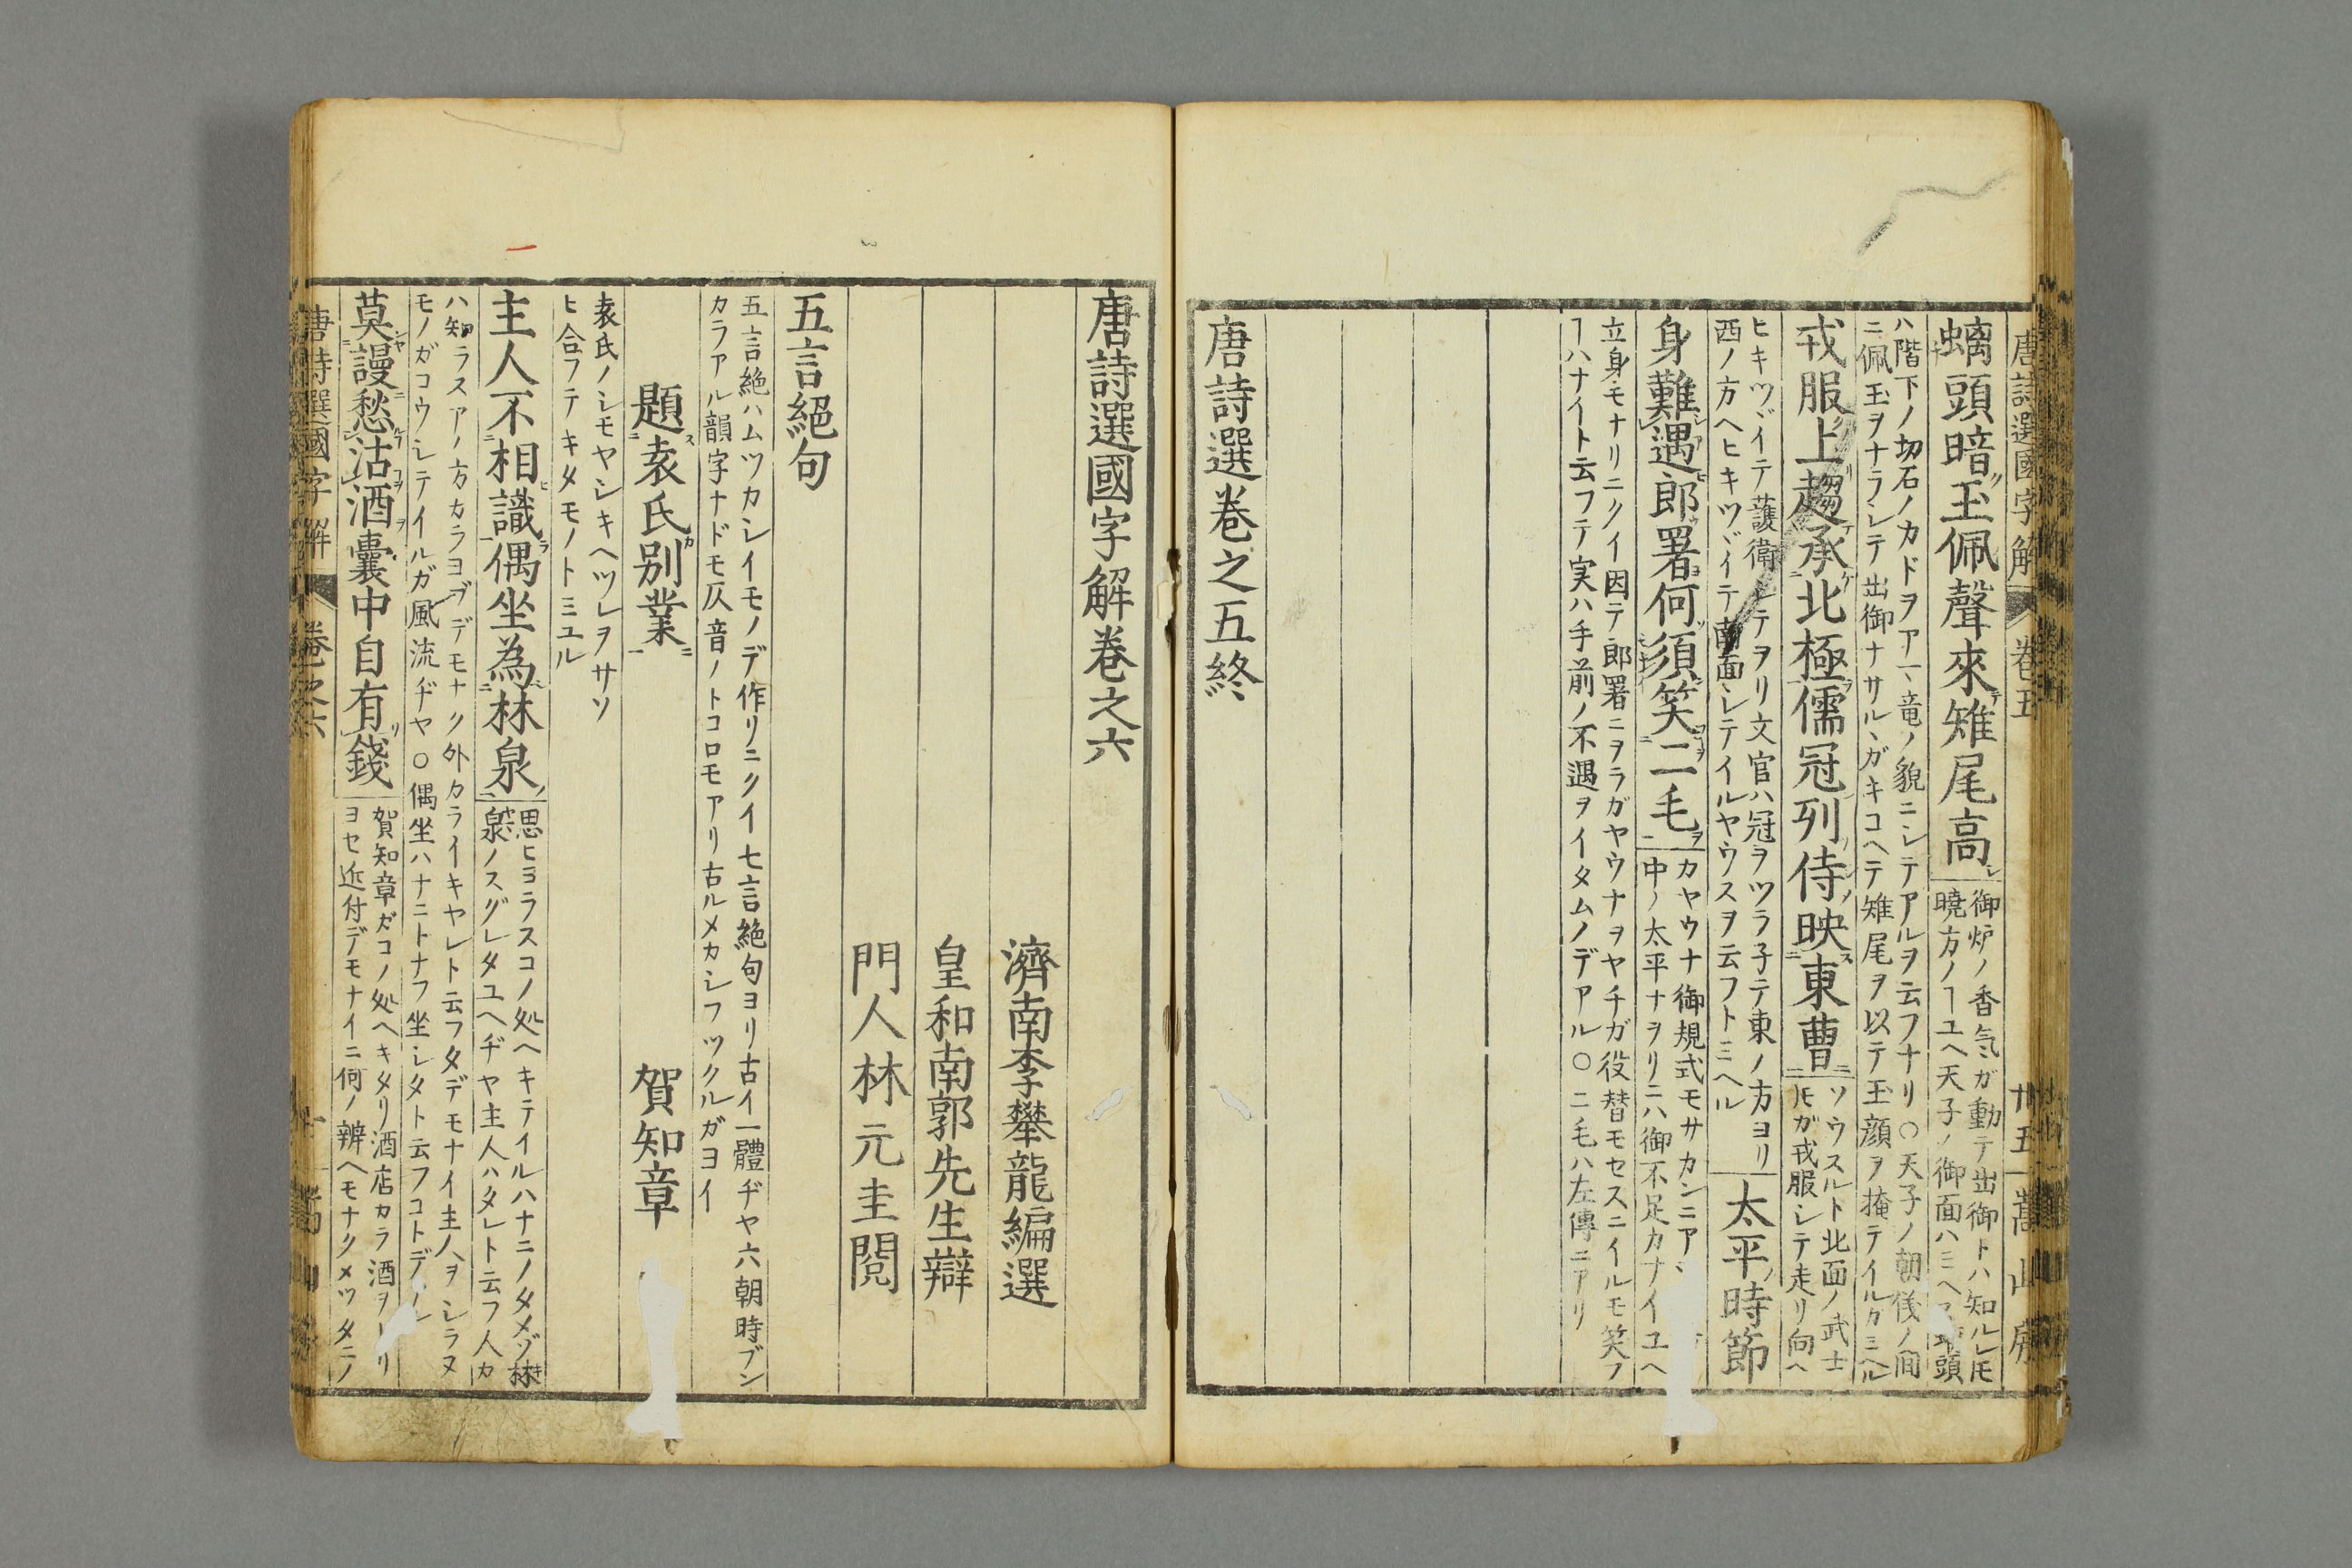 唐詩選國字解 卷五 廿五 嵩山房
螭頭暗玉佩聲來雉尾高
御炉ノ香気ガ動テ出御トハ知ルレ𪜈
暁方ノヿユヘ天子ノ御面ハミヘ
ハ階下ノ切石ノカドヲアヽ竜ノ貌ニシテアルヲ云フナリ○天子ノ朝儀ノ間
ニ佩玉ヲナラシテ出御ナサルヽガキコヘテ雉尾ヲ以テ玉顔ヲ掩テイルガミヘル
戎服上趨承北極儒冠列侍映東曹
ソウスルト北面ノ武士
𪜈ガ戎服シテ走リ向ヘ
ヒキツヾイテ護衛シテヲリ文官ハ冠ヲツラ子テ東ノ方ヨリ
西ノ方ヘヒキツヾイテ南面シテイルヤウスヲ云フトミヘル
太平時節
身難遇郎署何須笑二毛
カヤウナ御規式モサカンニアヽ
中ノ太平ナヲリニハ御不足カナイユヘ
立身モナリニクイ因テ郎署ニヲラガヤウナヲヤチガ役替モセスニイルモ笑フ
ヿハナイト云フテ実ハ手前ノ不遇ヲイタムノデアル○二毛ハ左傳ニアリ
唐詩選卷之五終
唐詩選國字解卷之六
濟南李攀龍編選
皇和南郭先生辯
門人林元圭閲
五言絕句
五言絶ハムツカシイモノデ作リニクイ七言絶句ヨリ古イ一體ヂヤ六朝時ブン
カラアル韻字ナドモ仄音ノトコロモアリ古ルメカシフツクルガヨイ
題袁氏別業 賀知章
袁氏ノシモヤシキヘツレヲサソ
ヒ合フテキタモノトミユル
主人不相識偶坐為林泉
思ヒヨラスコノ処ヘキテイルハナニノタメゾ林
泉ノスグレタユヘヂヤ主人ハタレト云フ人カ
ハ知ラスアノ方カラヨヲデモナク外カライキヤレト云フタデモナイ主人ヲシラヌ
モノガコウシテイルガ風流ヂヤ○偶坐ハナニトナフ坐シタト云フコトデアル
莫謾愁沽酒囊中自有錢
賀知章ガコノ処ヘキタリ酒店カラ酒ヲトリ
ヨセ近付デモナイニ何ノ辨ヘモナクメツタニノ
唐詩選國字解 卷之六